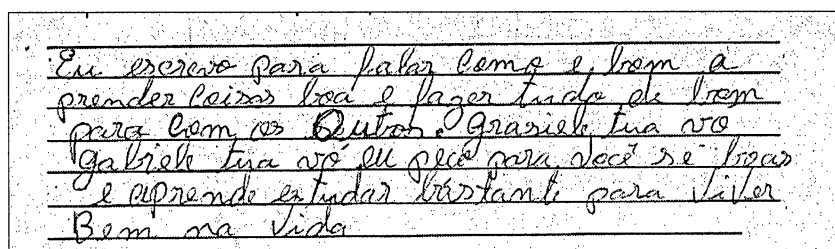 Eu escrevo para falar como e bom a
prender coisas boa e fazer tudo de bom
para com os Outos. grasiele tua vo
gabriele tua vó eu peço para você se boas
e aprende estudar bastante para viver
Bem na vida